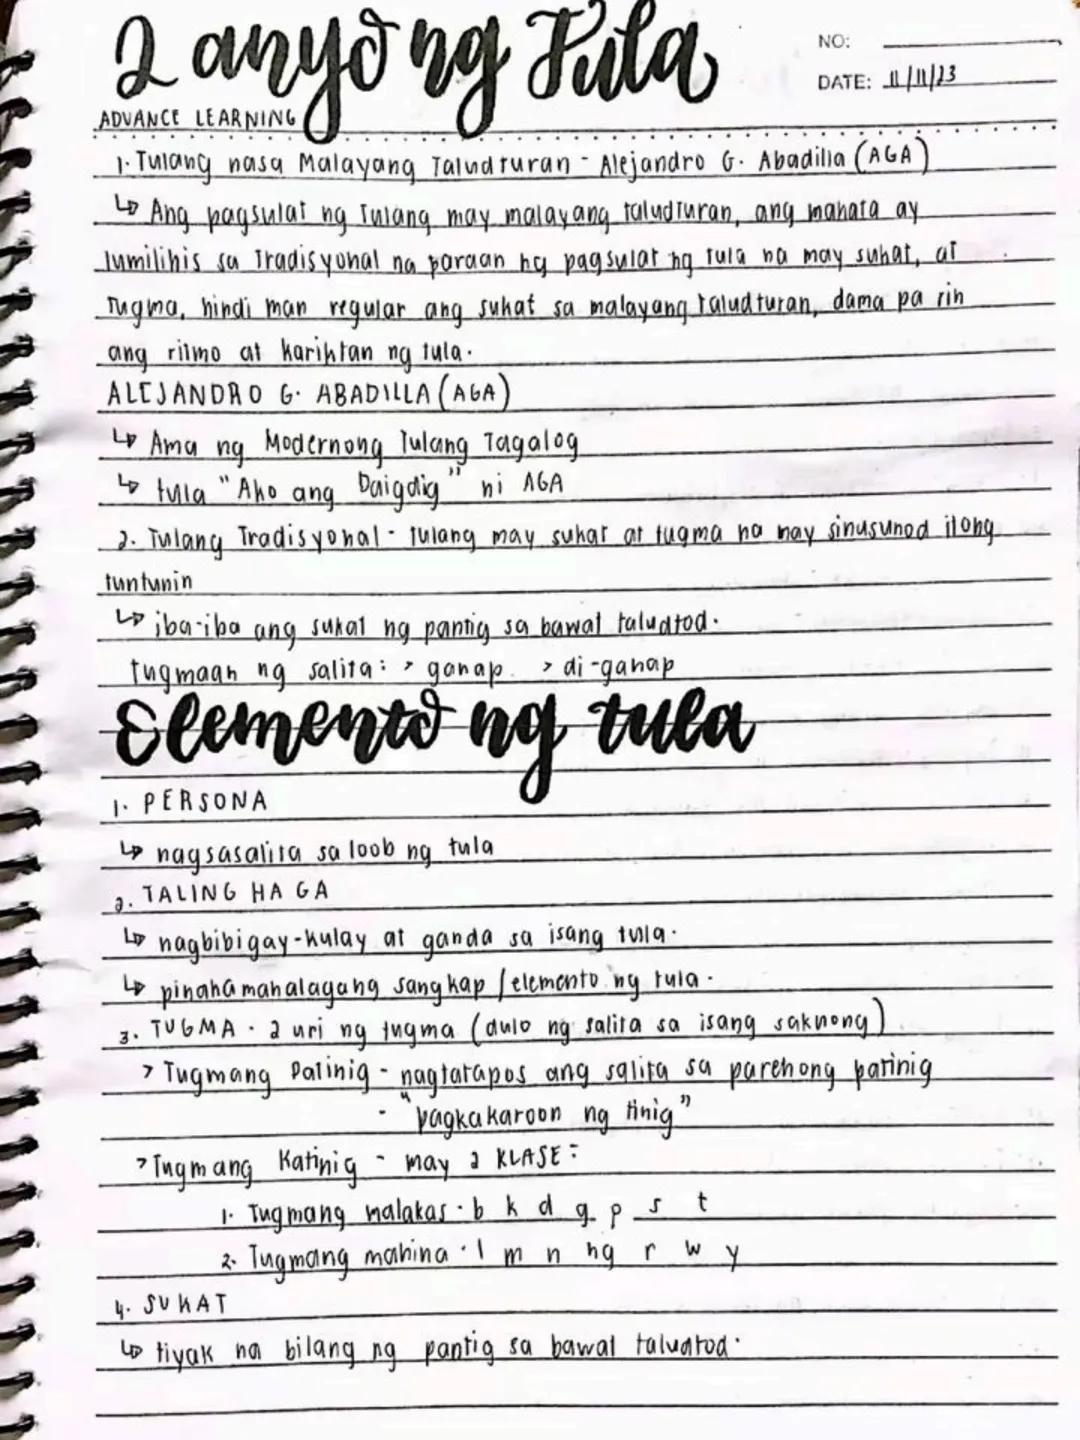 2 anyo ng Tula
NO:
DATE: 11/11/23
ADVANCE LEARNING
1. Tulang nasa Malayang Taludturan - Alejandro G. Abadilla (AGA)
↳ Ang pagsulat ng tulang may malayang taludturan, ang makata ay
lumilihis sa Tradisyonal na paraan ng pagsulat ng tula na may sukat, at
tugma, hindi man regular ang sukat sa malayang taludturan, dama pa rin
ang ritmo at kariktan ng tula.
ALEJANDRO G. ABADILLA (AGA)
↳ Ama ng Modernong Tulang Tagalog
↳ tula "Ako ang Daigdig" ni AGA
2. Tulang Tradisyonal - tulang may sukat at tugma na may sinusunod ilong
tuntunin
↳ iba-iba ang sukat ng pantig sa bawat taludtod.
tugmaan ng salita: > ganap. > di-ganap
Elemento ng tula
1. PERSONA
↳ nagsasalita sa loob ng tula
2. TALING HA GA
↳ nagbibigay-kulay at ganda sa isang tula.
↳ pinakamahalagang sangkap / elemento ng tula.
3. TUGMA - 2 uri ng tugma (dulo ng salita sa isang saknong)
> Tugmang Patinig - nagtatapos ang salita sa parehong patinig
- "pagkakaroon ng tinig"
> Tugmang Katinig - may 2 KLASE:
1. Tugmang malakas - b k d g p s t
2. Tugmang mahina - l m n ng r w y
4. SUKAT
↳ tiyak na bilang ng pantig sa bawat taludtod.